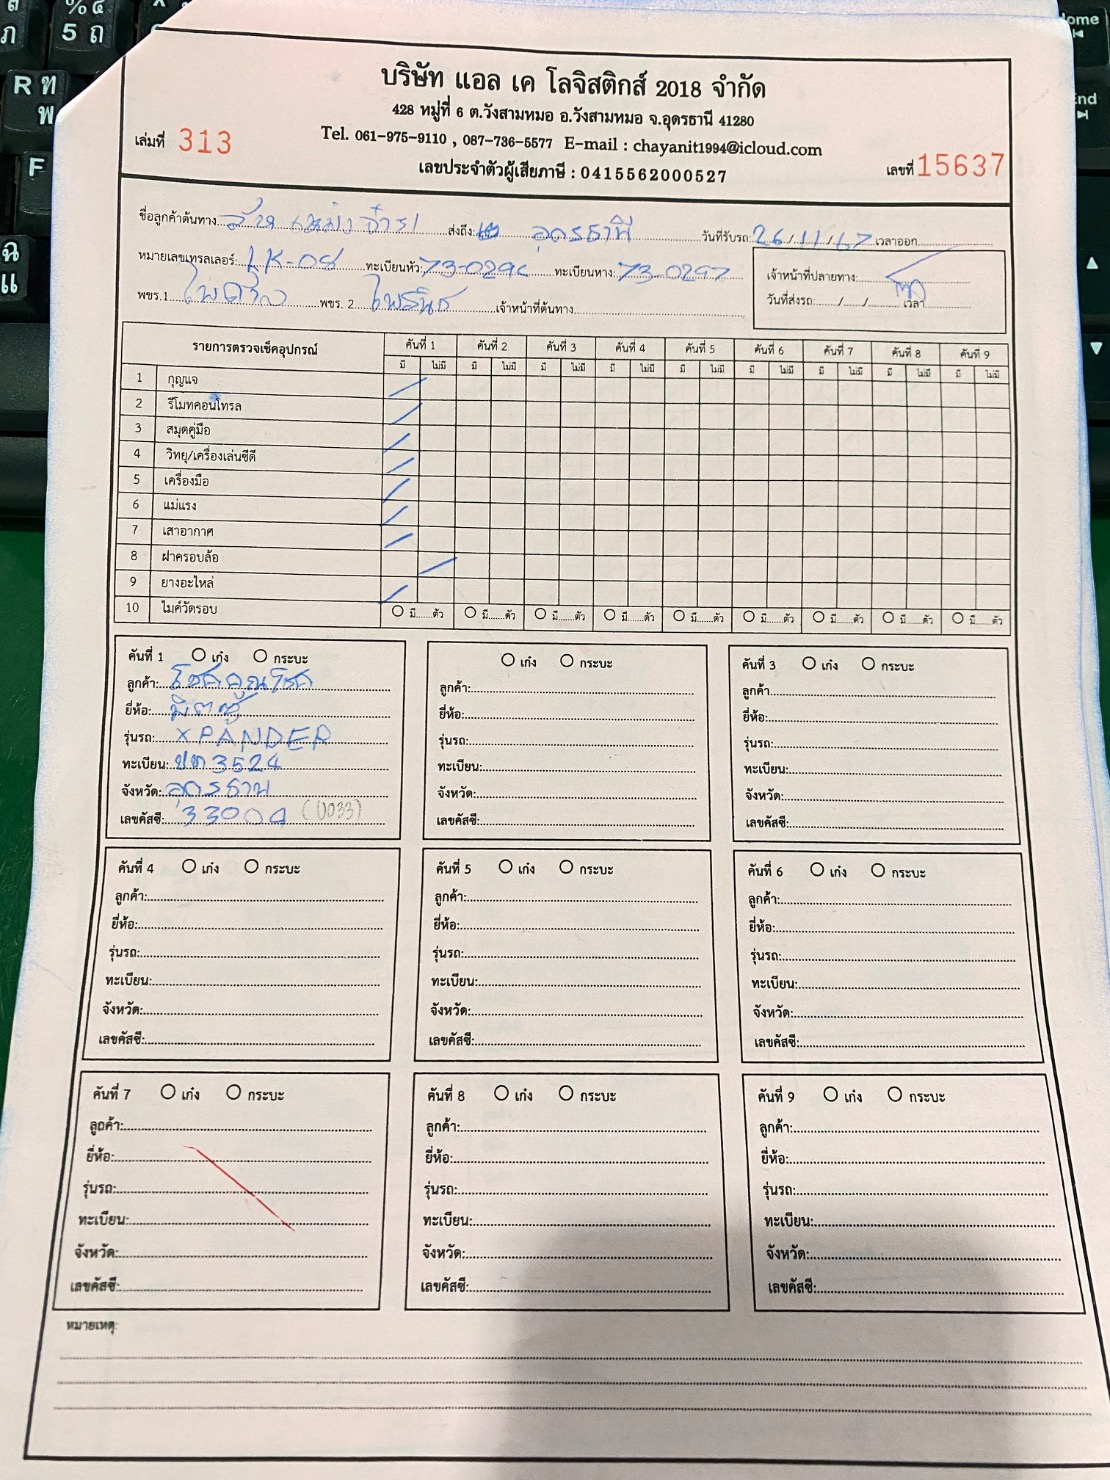 บริษัท แอล เค โลจิสติกส์ 2018 จำกัด
428 หมู่ที่ 6 ต.วังสามหมอ อ.วังสามหมอ จ.อุดรธานี 41280
Tel. 061-975-9110 , 087-736-5577 E-mail : chayanit1994@icloud.com
เลขประจำตัวผู้เสียภาษี : 0415562000527
เล่มที่ 313
เลขที่ 15637
ชื่อลูกค้าต้นทาง ส่งถึง: อุดรธานี วันที่รับรถ: 26/11/67 เวลาออก
หมายเลขเทรลเลอร์: LK-08 ทะเบียนหัว: 73-0296 ทะเบียนหาง: 73-0297
พขร.1 พขร. 2 เจ้าหน้าที่ต้นทาง
เจ้าหน้าที่ปลายทาง:
วันที่ส่งรถ / / เวลา
รายการตรวจเช็คอุปกรณ์ คันที่ 1 คันที่ 2 คันที่ 3 คันที่ 4 คันที่ 5 คันที่ 6 คันที่ 7 คันที่ 8 คันที่ 9
มี ไม่มี มี ไม่มี มี ไม่มี มี ไม่มี มี ไม่มี มี ไม่มี มี ไม่มี มี ไม่มี มี ไม่มี
1 กุญแจ
2 รีโมทคอนโทรล
3 สมุดคู่มือ
4 วิทยุ/เครื่องเล่นซีดี
5 เครื่องมือ
6 แม่แรง
7 เสาอากาศ
8 ฝาครอบล้อ
9 ยางอะไหล่
10 ไมค์วัดรอบ มี......ตัว มี......ตัว มี......ตัว มี......ตัว มี......ตัว มี......ตัว มี......ตัว มี......ตัว มี......ตัว
คันที่ 1 เก๋ง กระบะ
ลูกค้า: โชคคูณโชค
ยี่ห้อ: มิตซู
รุ่นรถ: XPANDER
ทะเบียน: ขต 3524
จังหวัด: อุดรธานี
เลขคัสซี: 33004 (0033)
เก๋ง กระบะ
ลูกค้า:
ยี่ห้อ:
รุ่นรถ:
ทะเบียน:
จังหวัด:
เลขคัสซี:
คันที่ 3 เก๋ง กระบะ
ลูกค้า
ยี่ห้อ:
รุ่นรถ:
ทะเบียน:
จังหวัด:
เลขคัสซี:
คันที่ 4 เก๋ง กระบะ
ลูกค้า:
ยี่ห้อ:
รุ่นรถ:
ทะเบียน:
จังหวัด:
เลขคัสซี:
คันที่ 5 เก๋ง กระบะ
ลูกค้า:
ยี่ห้อ:
รุ่นรถ:
ทะเบียน:
จังหวัด:
เลขคัสซี:
คันที่ 6 เก๋ง กระบะ
ลูกค้า:
ยี่ห้อ:
รุ่นรถ:
ทะเบียน:
จังหวัด:
เลขคัสซี:
คันที่ 7 เก๋ง กระบะ
ลูกค้า:
ยี่ห้อ:
รุ่นรถ:
ทะเบียน:
จังหวัด:
เลขคัสซี:
คันที่ 8 เก๋ง กระบะ
ลูกค้า:
ยี่ห้อ:
รุ่นรถ:
ทะเบียน:
จังหวัด:
เลขคัสซี:
คันที่ 9 เก๋ง กระบะ
ลูกค้า:
ยี่ห้อ:
รุ่นรถ:
ทะเบียน:
จังหวัด:
เลขคัสซี:
หมายเหตุ: